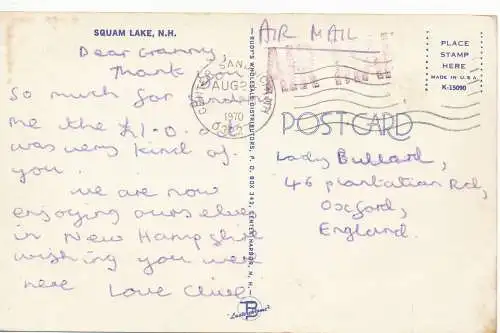 SQUAM LAKE, N.H.
AIR MAIL
Dear Granny,
Thank you
so much for sending
me the £1.0.0. It
was very kind of
you.
we are now
enjoying ourselves
in New Hampshire
wishing you were
here Love Clive
SAN
AUG
1970
RUDY'S WHOLESALE DISTRIBUTORS, P. O. BOX 242, CENTER HARBOR, N. H.
PLACE
STAMP
HERE
MADE IN U.S.A.
K-15090
POST CARD
Lady Bullard,
46 plantation Rd,
Oxford,
England.